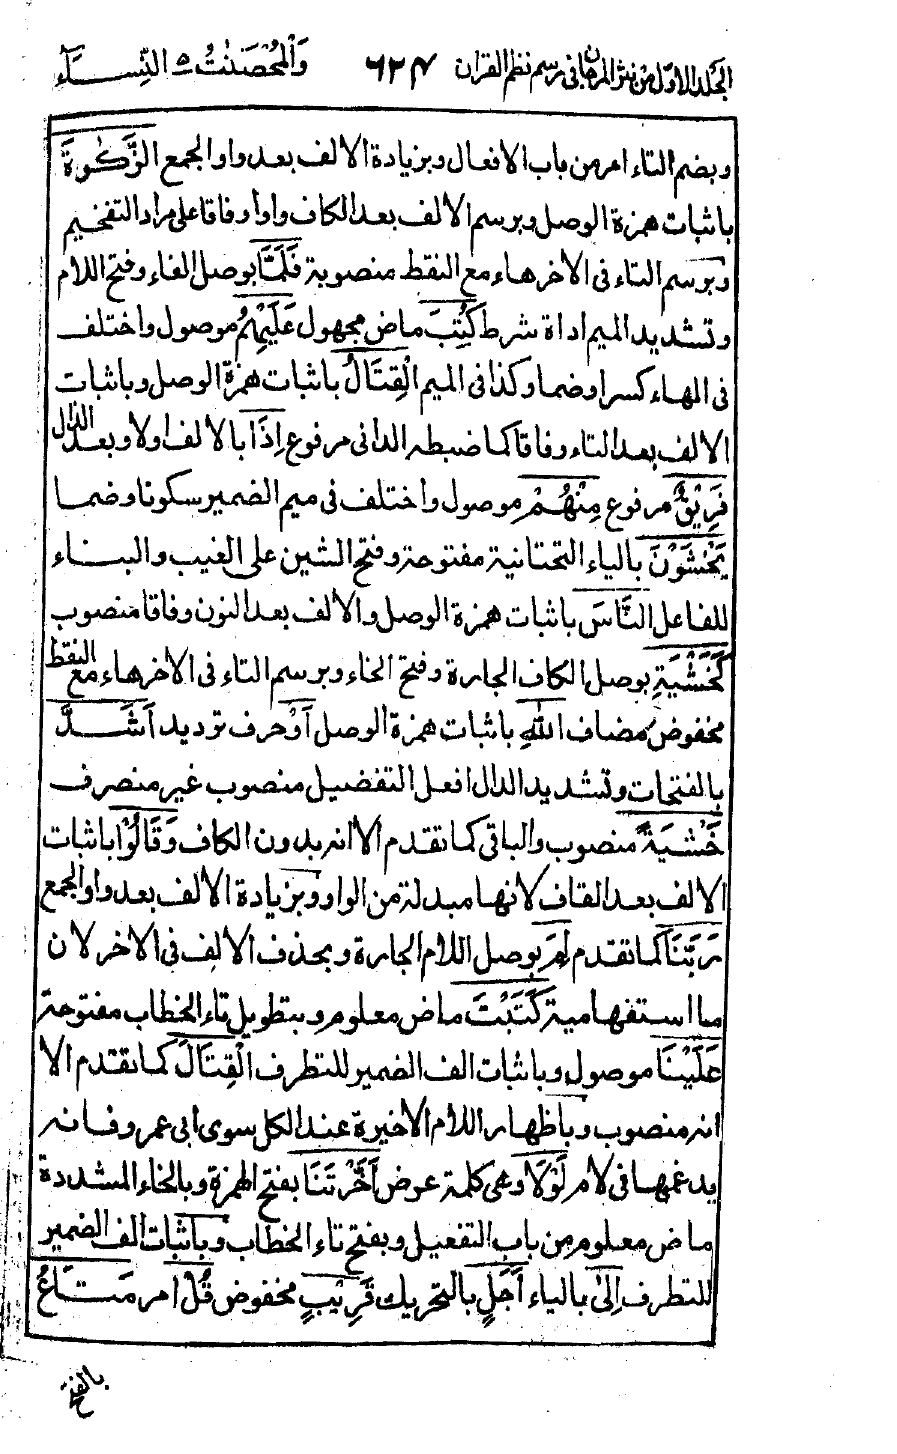 الجلد الاول من نثر المرجان في رسم نظم القران ٦٢٣ والمحصنت ٥ النساء
وبضم التاء امر من باب الافعال وبزيادة الالف بعد واو الجمع الزَّكٰوةَ
باثبات همزة الوصل وبرسم الالف بعد الكاف واوا وفاقا على مراد التفخيم
وبرسم التاء في الاخر هاء مع النقط منصوبة فَلَمَّا بوصل الفاء وفتح اللام
وتشديد الميم اداة شرط كُتِبَ ماض مجهول عَلَيْهِمُ موصول واختلف
في الهاء كسرا وضما وكذا في الميم الْقِتَالُ باثبات همزة الوصل وباثبات
الالف بعد التاء وفاقا كما ضبطه الداني مرفوع اِذَا بالالف اولا وبعد الذال
فَرِيْقٌ مرفوع مِنْهُمْ موصول واختلف في ميم الضمير سكونا وضما
يَخْشَوْنَ بالياء التحتانية مفتوحة وفتح الشين على الغيب والبناء
للفاعل النَّاسَ باثبات همزة الوصل والالف بعد النون وفاقا منصوب
كَخَشْيَةِ بوصل الكاف الجارة وفتح الخاء وبرسم التاء في الاخر هاء مع النقط
مخفوض مضاف اللهِ باثبات همزة الوصل اَوْ حرف ترديد اَشَدَّ
بالفتحات وتشديد الدال افعل التفضيل منصوب غير منصرف
خَشْيَةً منصوب والباقي كما تقدم الا انه بدون الكاف وَقَالُوْا باثبات
الالف بعد القاف لانها مبدلة من الواو وبزيادة الالف بعد واو الجمع
رَبَّنَا كما تقدم لِمَ بوصل اللام الجارة وبحذف الالف في الاخر لان
ما استفهامية كَتَبْتَ ماض معلوم وبتطويل تاء الخطاب مفتوحة
عَلَيْنَا موصول وباثبات الف الضمير للتطرف الْقِتَالَ كما تقدم الا
انه منصوب وباظهار اللام الاخيرة عند الكل سوى ابي عمرو فانه
يدغمها في لام لَوْلَا وهي كلمة عرض اَخَّرْتَنَا بفتح الهمزة وبالخاء المشددة
ماض معلوم من باب التفعيل وبفتح تاء الخطاب وباثبات الف الضمير
للتطرف اِلٰى بالياء اَجَلٍ بالتحريك قَرِيْبٍ مخفوض قُلْ امر مَتَاعُ
بالفتح